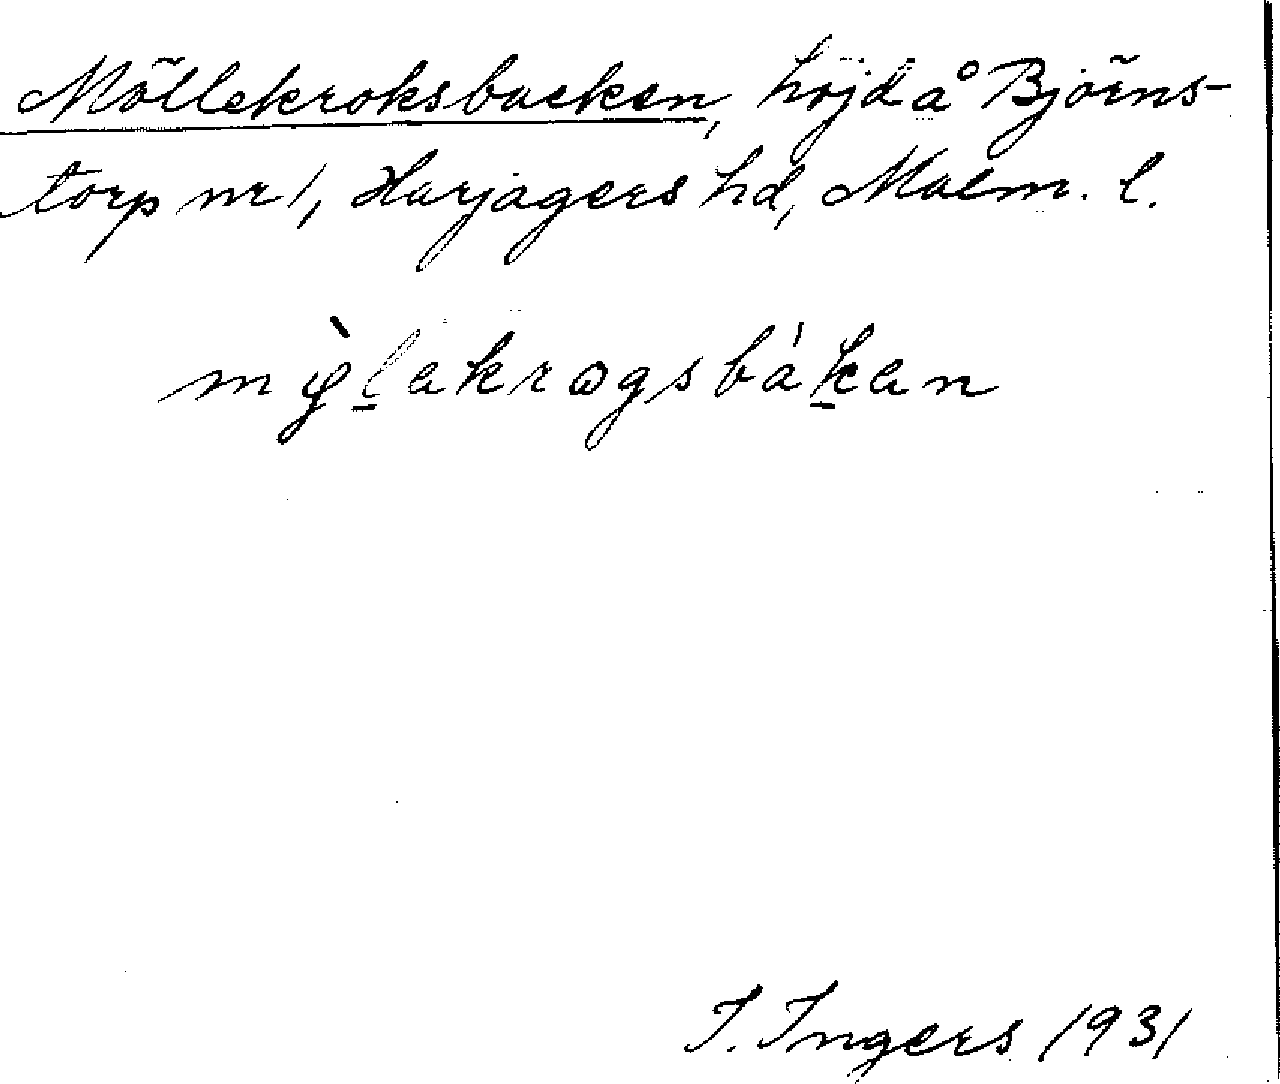 Möllekroksbacken, höjd å Björns-
torp nr 1, Harjagers hd, Malm. l.
mø̀l̠akrogsbák̠an
I. Ingers 1931